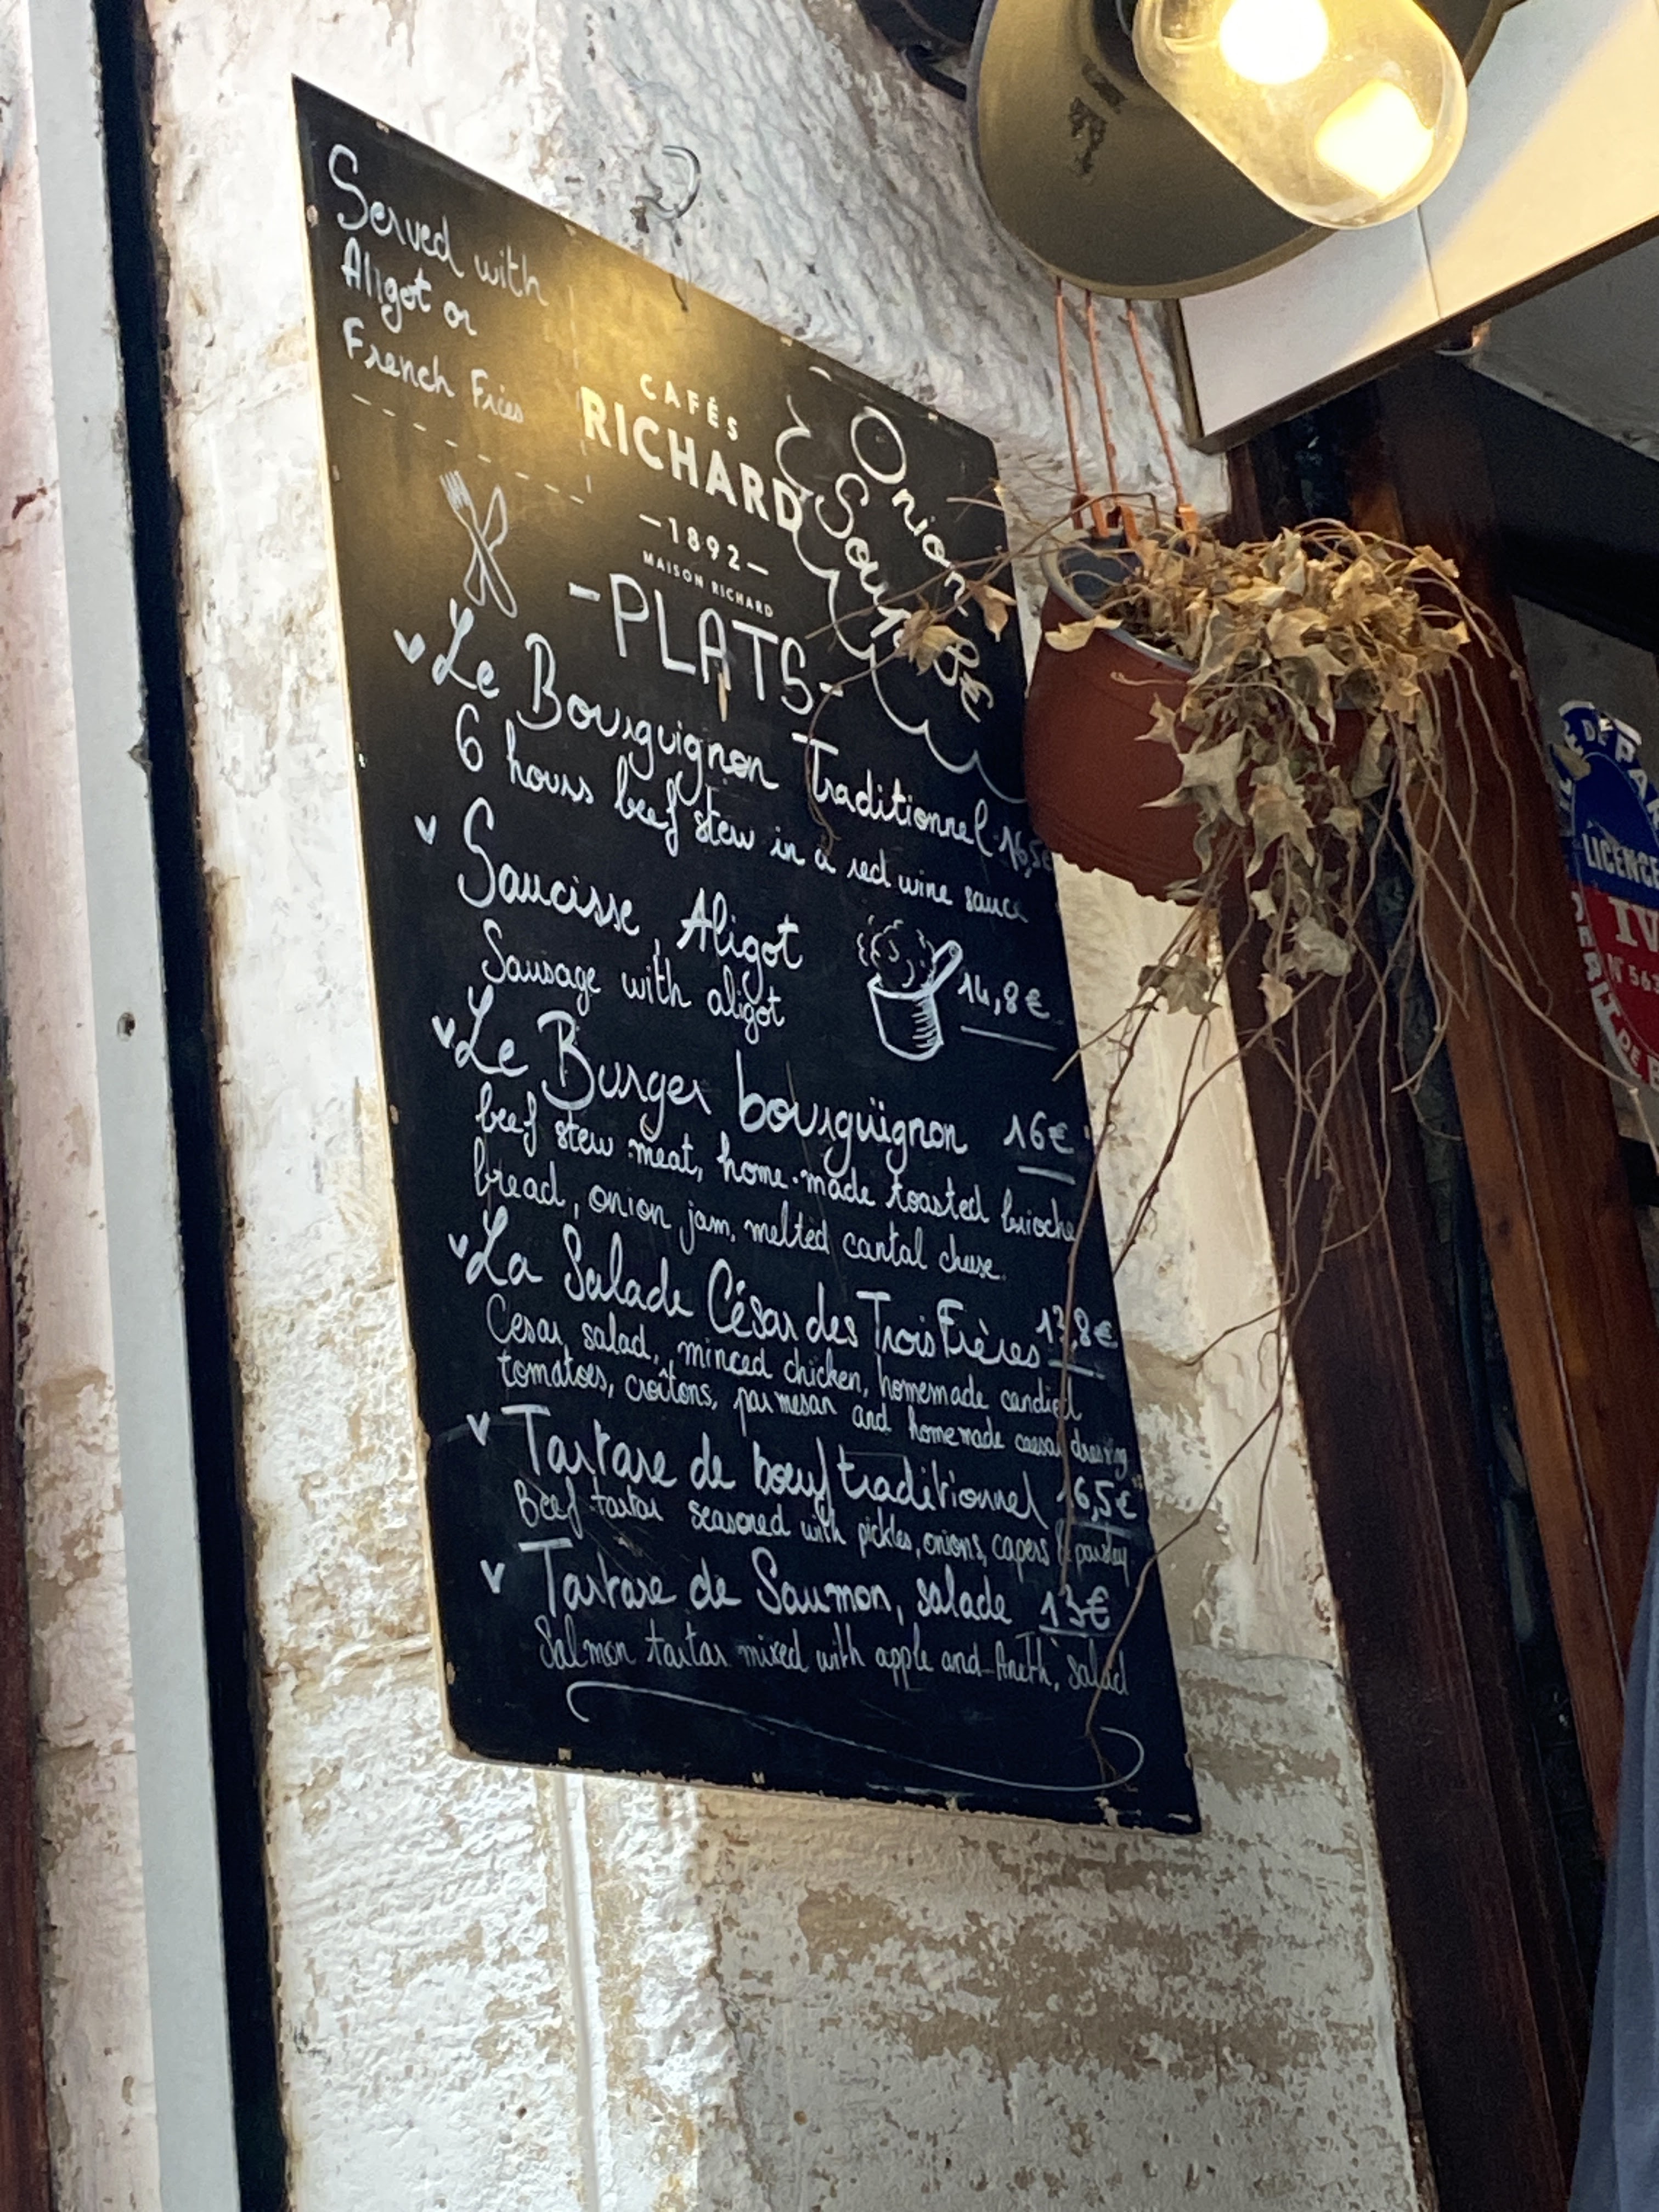 Served with
Aligot or
French Fries
CAFÉS
RICHARD
—1892—
MAISON RICHARD
Onion
Soup 8€
-PLATS-
Le Bourguignon Traditionnel 16,5€
6 hours beef stew in a red wine sauce
Saucisse, Aligot
Sausage with aligot
14,8€
Le Burger bourguignon 16€
beef stew meat, home-made toasted brioche
bread, onion jam, melted cantal cheese.
La Salade César des Trois Frères 13,8€
Cesar salad, minced chicken, homemade candied
tomatoes, croîtons, parmesan and homemade caesar dressing
Tartare de bœuf traditionnel 16,5€
Beef tartar seasoned with pickles, onions, capers & parsley
Tartare de Saumon, salade 13€
Salmon tartar mixed with apple and Aneth, salad
LICENCE
IV
N° 563